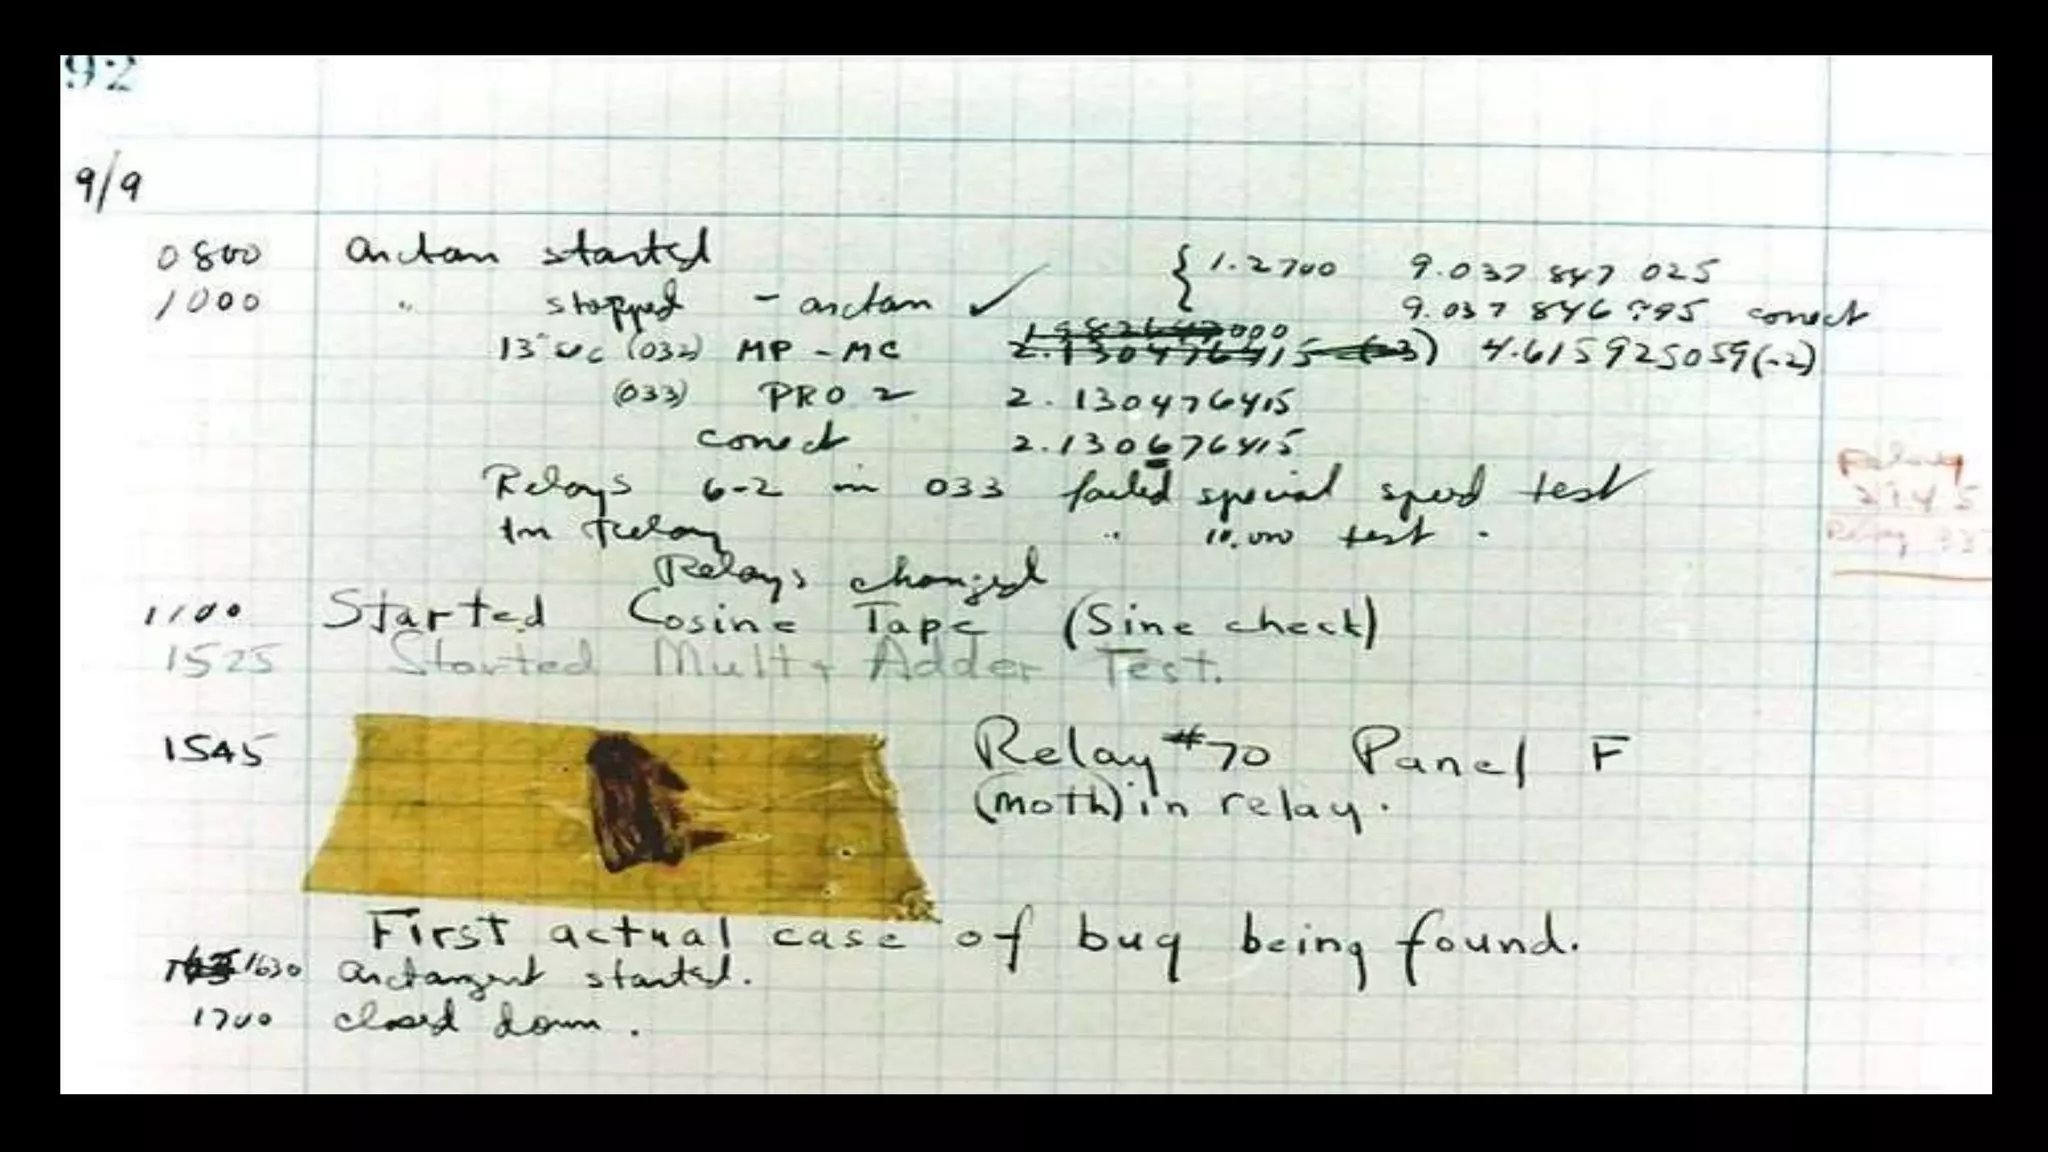 92
9/9
0800 arctan started { 1.2700 9.037 847 025
1000 " stopped - arctan ✓ 9.037 846 795 correct
13 sec (032) MP - MC 2.130476415 (-3) 4.615925059(-2)
(033) PRO 2 2.130476415
correct 2.130676415
Relays 6-2 in 033 failed special speed test
In Relay " 10.000 test .
Relays changed
1100 Started Cosine Tape (Sine check)
1525 Started Mult + Adder Test.
1545 Relay #70 Panel F
(moth) in relay.
First actual case of bug being found.
1630 arctangent started.
1700 closed down.
Relay
2145
Relay